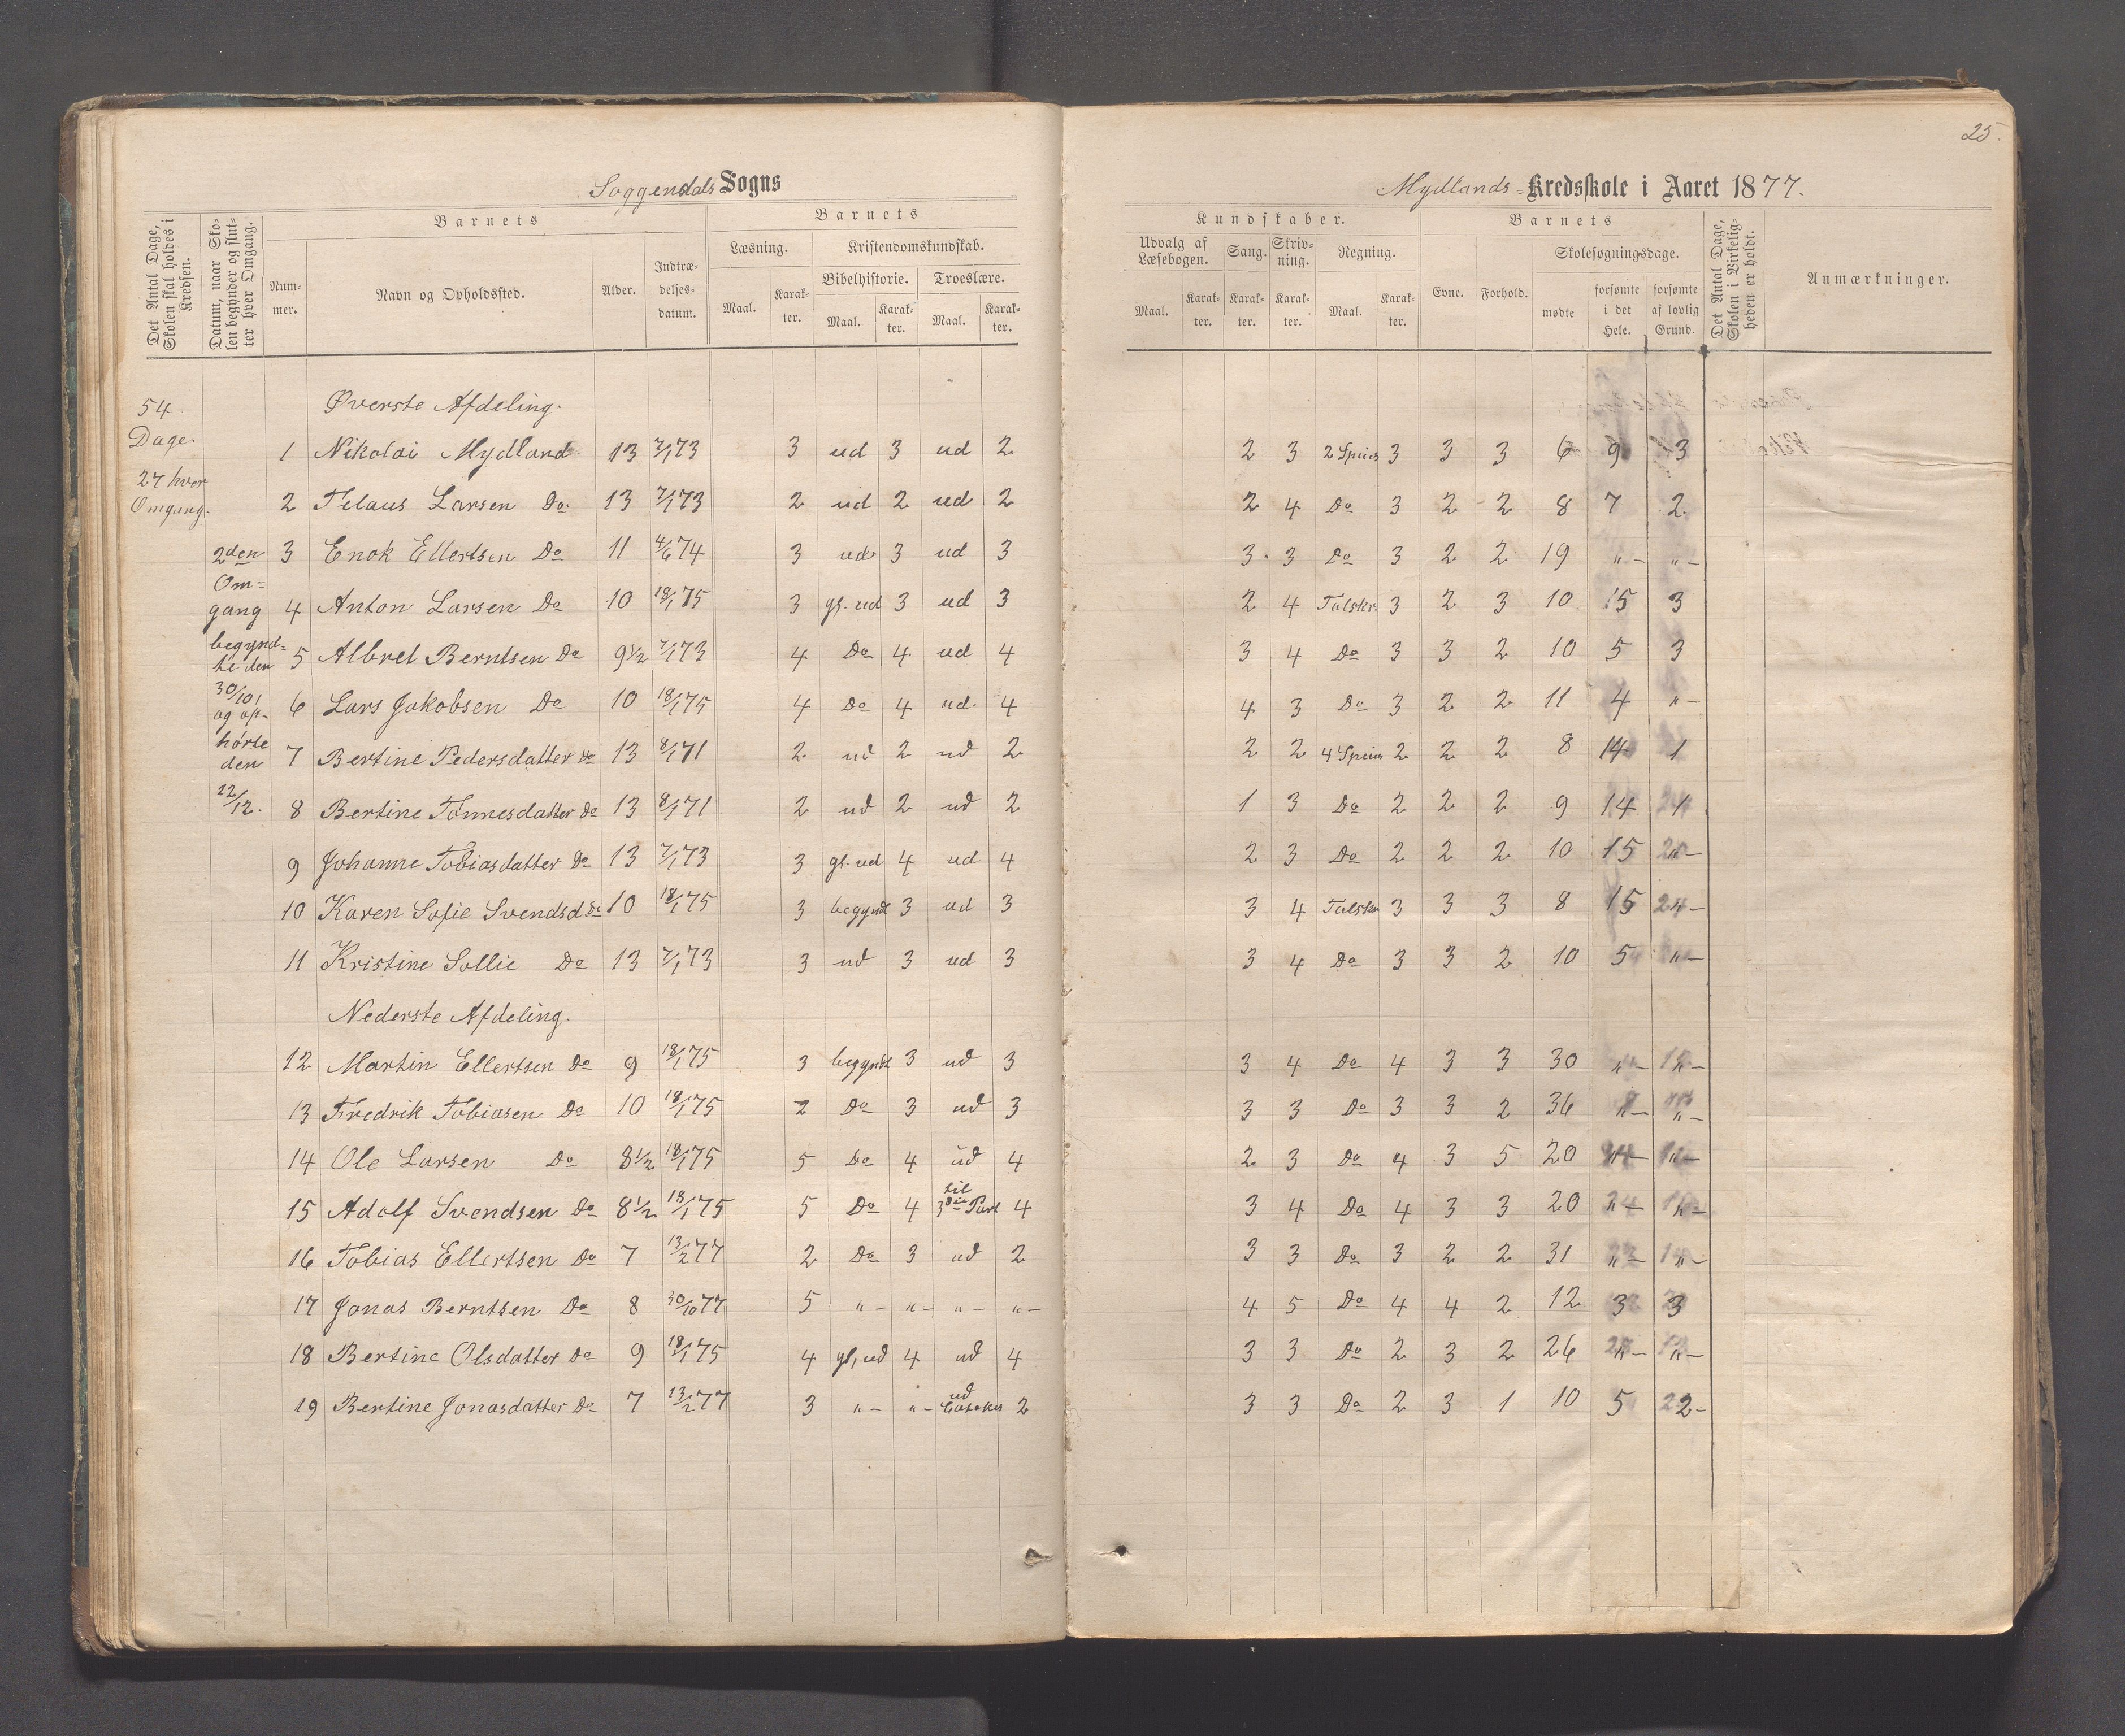 25.
Soggendals Sogns
Mydlands- Kredsskole i Aaret 1877.
Det Antal Dage, Skolen skal holdes i Kredsen.
Datum, naar Skolen begynder og slutter hver Omgang.
Barnets
Nummer.
Navn og Opholdssted.
Alder.
Indtrædelsesdatum.
Barnets
Læsning.
Maal.
Karakter.
Kristendomskundskab.
Bibelhistorie.
Maal.
Karakter.
Troeslære.
Maal.
Karakter.
Kundskaber.
Udvalg af Læsebogen.
Maal.
Karakter.
Sang.
Karakter.
Skrivning.
Karakter.
Regning.
Maal.
Karakter.
Barnets
Evne.
Forhold.
Skolesøgningsdage.
mødte
forsømte i det Hele.
forsømte af lovlig Grund.
Det Antal Dage, Skolen i Virkeligheden er holdt.
Anmærkninger.
54 Dage.
27 hver Omgang.
2den Om=
gang
begynd-
te den
30/10
og op-
hørte
den
22/12.
Øverste Afdeling.
1 Nikolai Mydland 13 7/1 73 3 ud 3 ud 2 2 3 2 Spcies 3 3 3 6 9 3
2 Telaus Larsen Do 13 7/1 73 2 ud 2 ud 2 2 4 Do 3 2 2 8 7 2
3 Enok Ellertsen Do 11 4/6 74 3 ud 3 ud 3 3 3 Do 3 2 2 19 "- "-
4 Anton Larsen Do 10 18/1 75 3 gl. ud 3 ud 3 2 4 Talskr. 3 2 3 10 15 3
5 Albret Berntsen Do 9 1/2 7/1 73 4 Do 4 ud 4 3 4 Do 3 3 2 10 5 3
6 Lars Jakobsen Do 10 18/1 75 4 Do 4 ud 4 4 3 Do 3 2 2 11 4 "-
7 Bertine Pedersdatter Do 13 8/1 71 2 ud 2 ud 2 2 2 4 Spcies 2 2 2 8 14 1
8 Bertine Tønnesdatter Do 13 8/1 71 2 ud 2 ud 2 1 3 Do 2 2 2 9 14 1
9 Johanne Tobiasdatter Do 13 7/1 73 3 gl. ud 4 ud 4 2 3 Do 2 2 2 10 15 "-
10 Karen Sofie Svendsd Do 10 18/1 75 3 begyndt 3 ud 3 3 4 Talskr 3 3 3 8 15
11 Kristine Sollie Do 13 7/1 73 3 ud 3 ud 3 3 4 Do 3 3 2 10 5 "-
Nederste Afdeling.
12 Martin Ellertsen Do 9 18/1 75 3 begyndt 3 ud 3 3 4 Do 4 3 3 30 "- "-
13 Fredrik Tobiasen Do 10 18/1 75 2 Do 3 ud 3 3 3 Do 3 3 2 36 "- "-
14 Ole Larsen Do 8 1/2 18/1 75 5 Do 4 ud 4 2 3 Do 4 3 5 20 "- "-
15 Adolf Svendsen Do 8 1/2 18/1 75 5 Do 4 til 3die Part 4 3 4 Do 4 3 3 20 "- "-
16 Tobias Ellertsen Do 7 13/2 77 2 Do 3 ud 2 3 3 Do 3 2 2 31 "- "-
17 Jonas Berntsen Do 8 30/10 77 5 "- "- "- "- 4 5 Do 4 4 2 12 3 3
18 Bertine Olsdatter Do 9 18/1 75 4 gl, ud 4 ud 4 3 3 Do 2 3 2 26 "- "-
19 Bertine Jonasdatter Do 7 13/2 77 3 "- "- ud 2 3 3 Do 2 3 1 10 5 2-